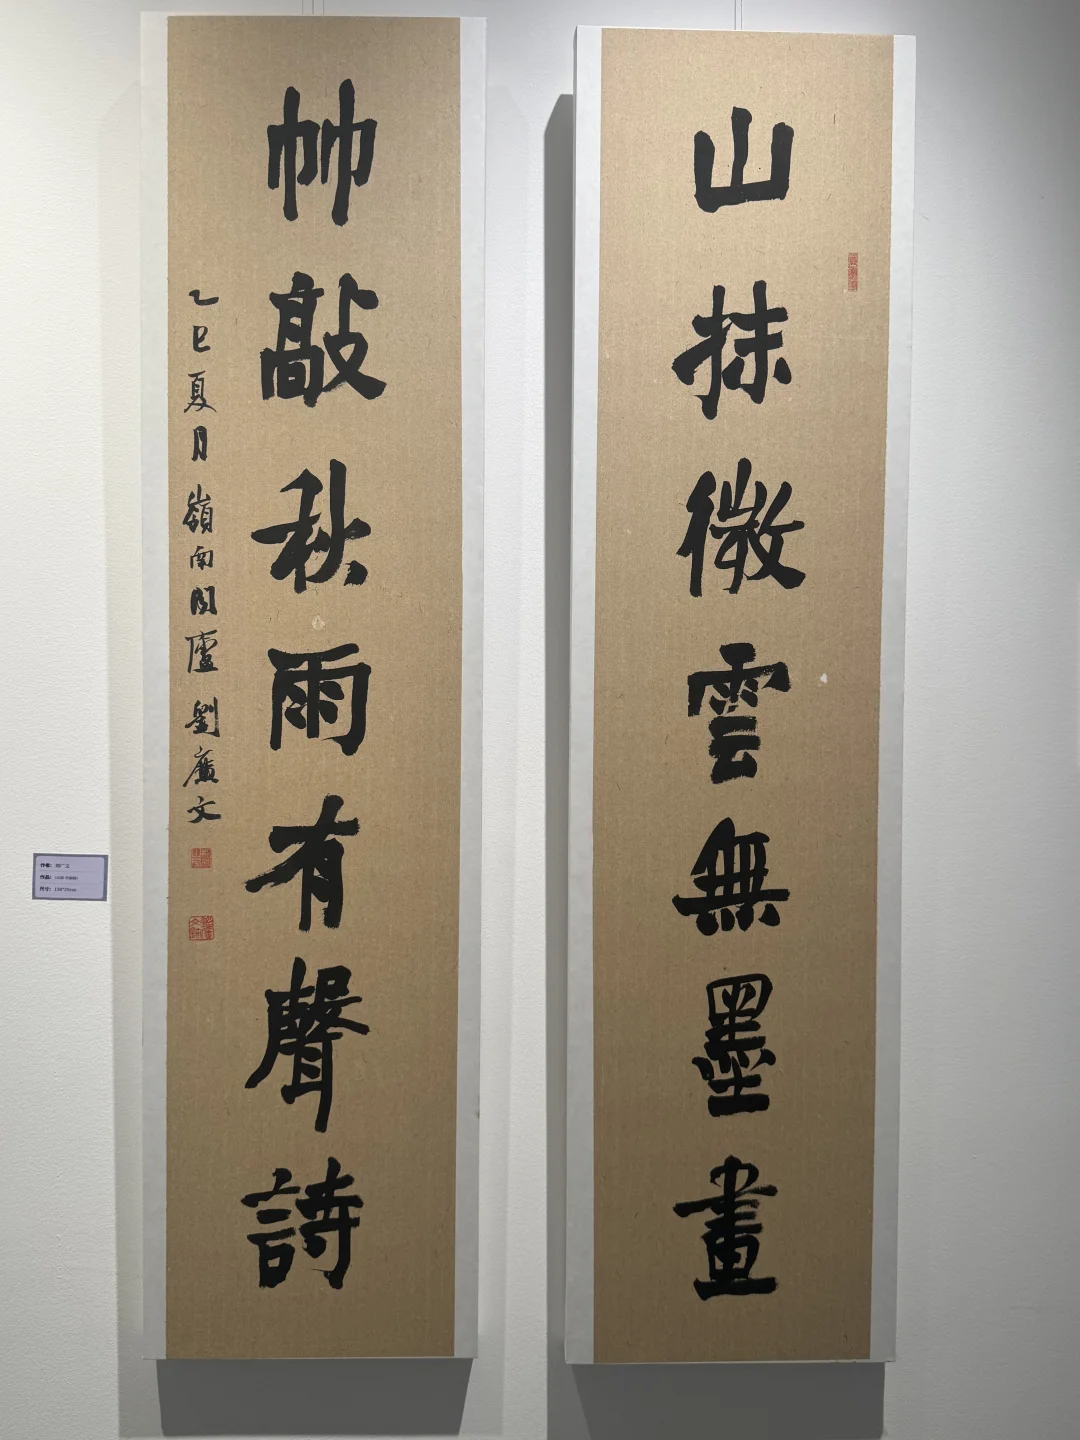 山抹微雲無墨畫
竹敲秋雨有聲詩
乙巳夏月嶺南閒廬劉廣文
作者：刘广文
作品：
尺寸：